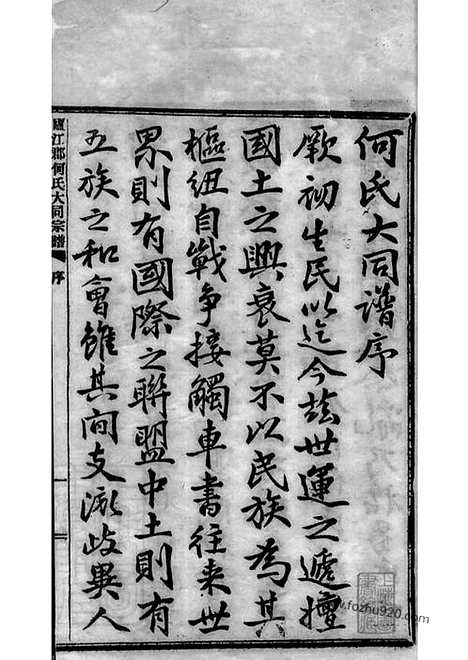 何氏大同譜序
厥初生民以迄今茲世運之遞擅
國土之興衰莫不以民族為其
樞紐自戰爭接觸車書往來世
界則有國際之聯盟中土則有
五族之和會雖其間支派歧異人
廬江郡何氏大同宗譜 序
www.fozhu920.com